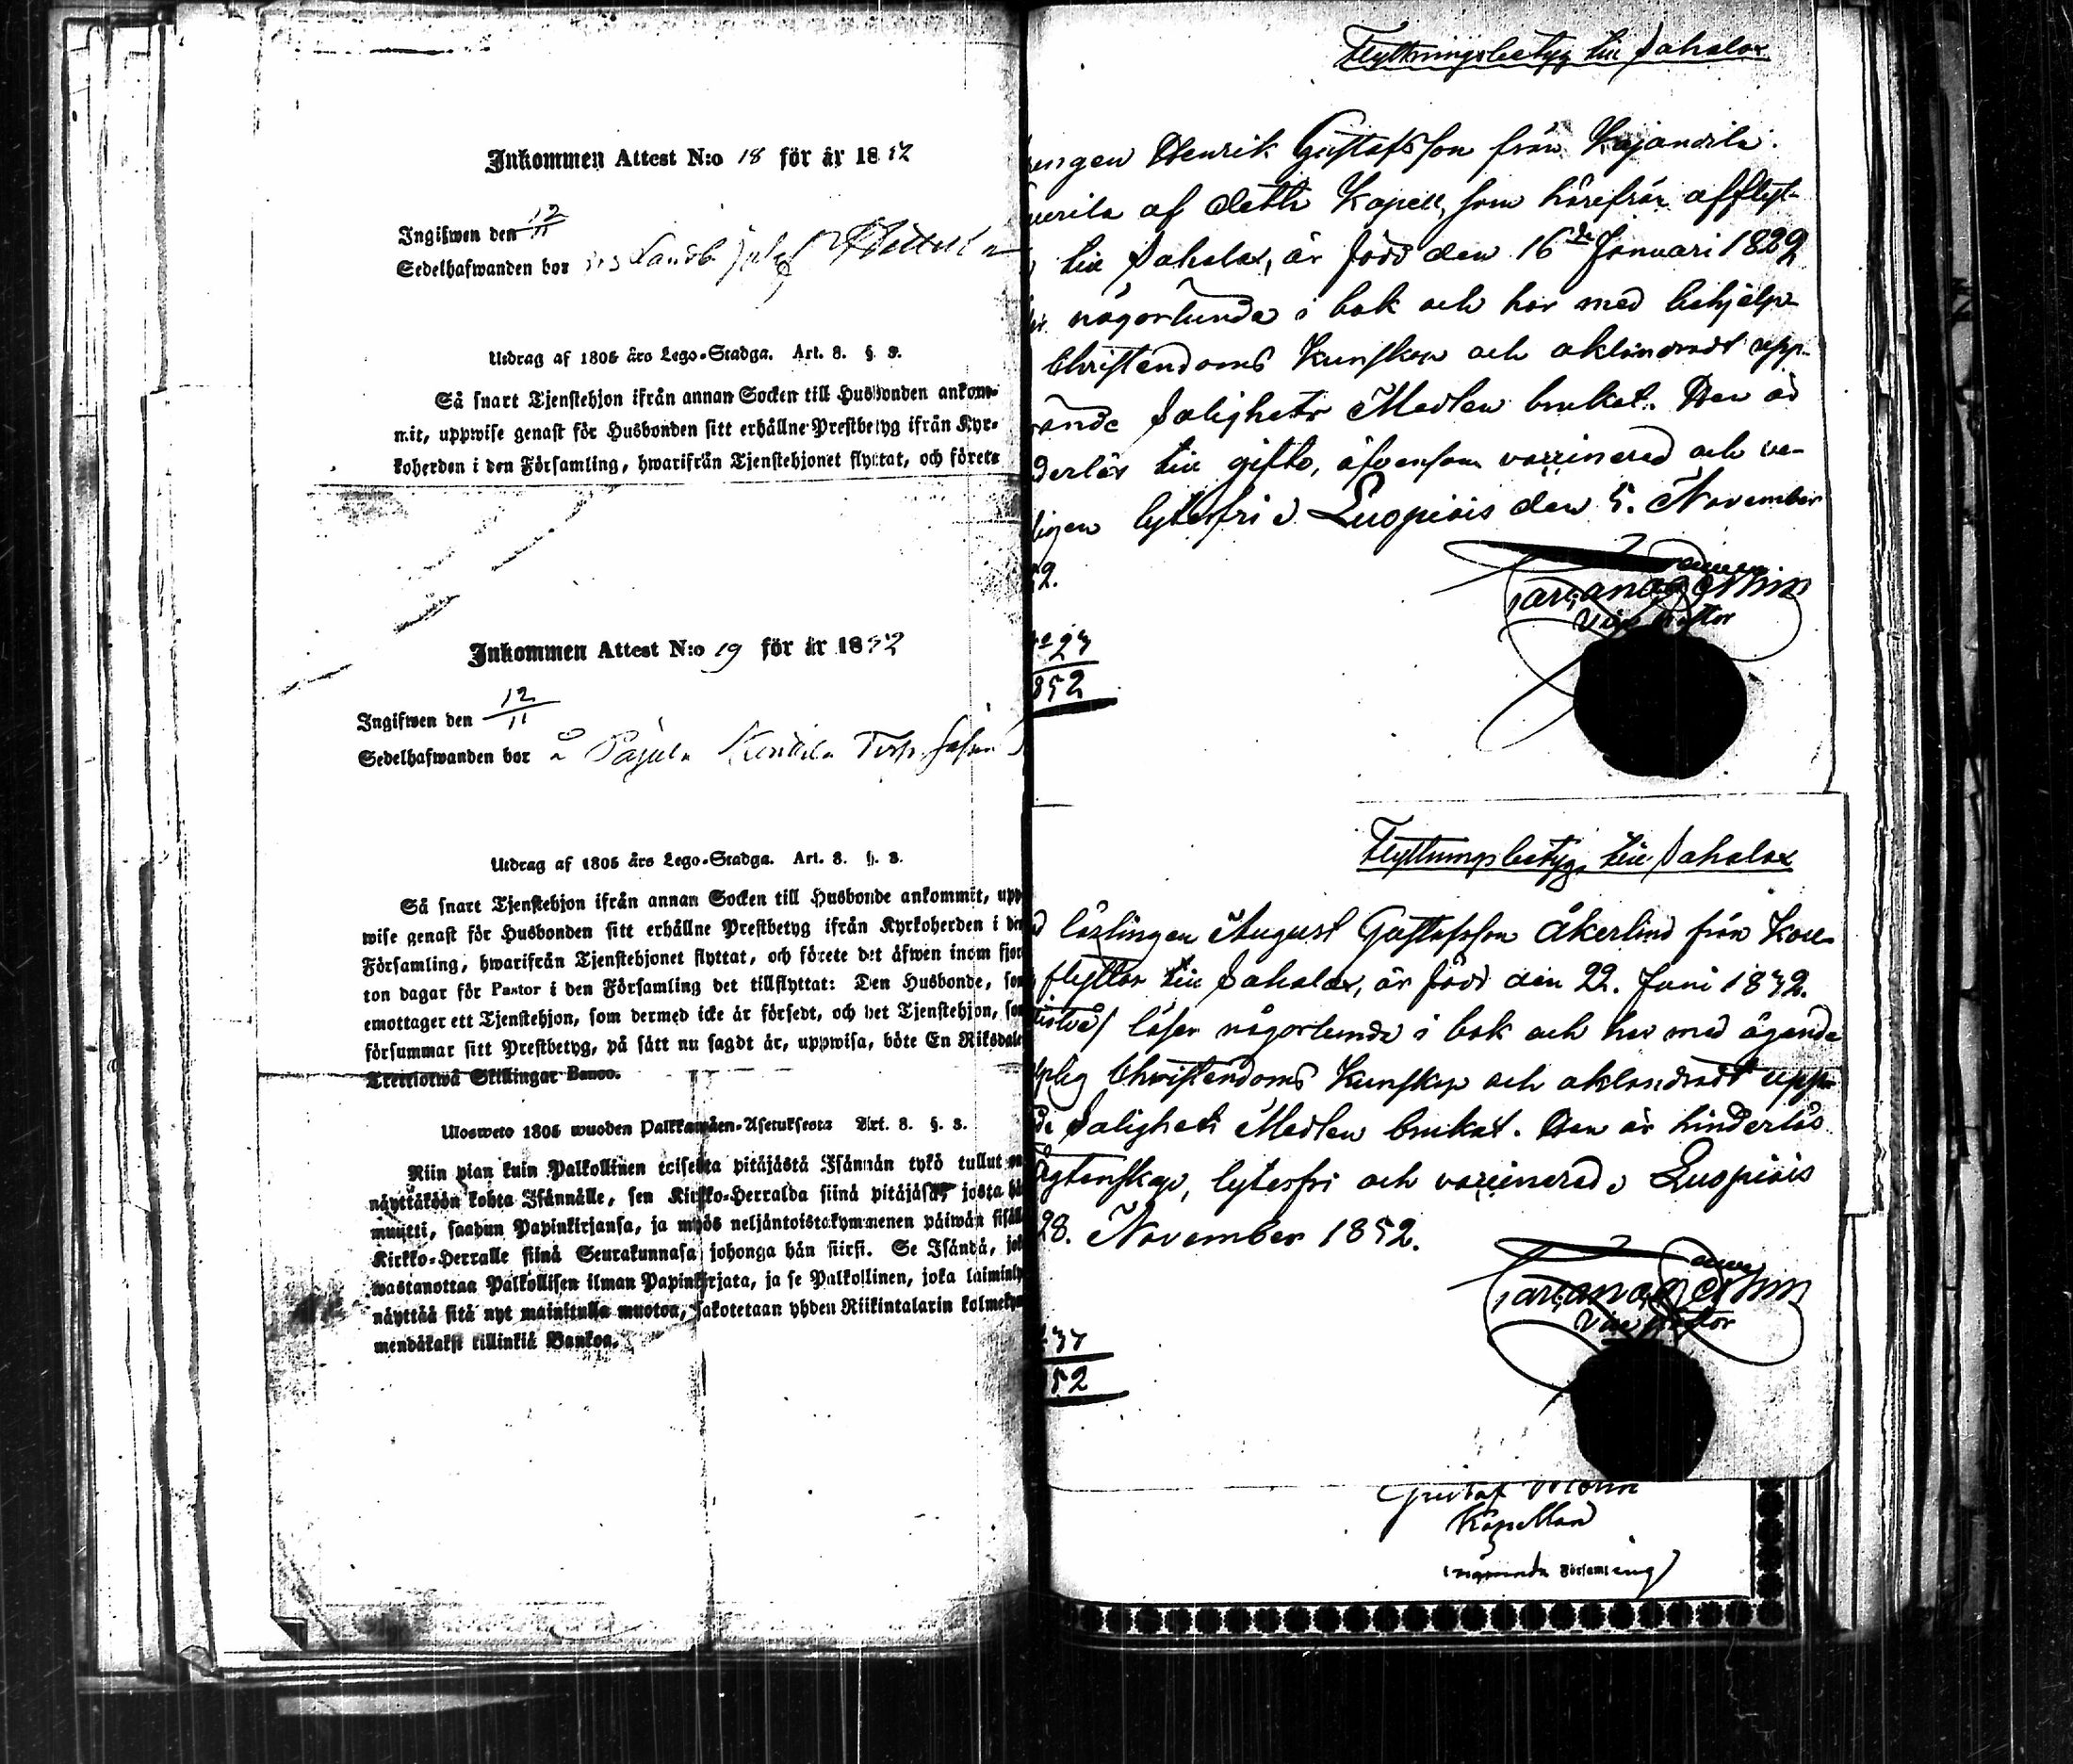 Inkommen Attest N:o 18 för år 1852
Ingifwen den 12/11
Sedelhafwanden bor hos
Utdrag af 1805 års Lego-Stadga. Art. 8. §. 3.
Så snart Tjenstehjon ifrån annan Socken till Husbonden ankom-
mit, uppwise genast för Husbonden sitt erhållne Prestbetyg ifrån Kyr-
koherden i den Församling, hwarifrån Tjenstehjonet flyttat, och förete
Inkommen Attest N:o 19 för år 1852
Ingifwen den 12/11
Sedelhafwanden bor å Pajula
Utdrag af 1805 års Lego-Stadga. Art. 8. §. 3.
Så snart Tjenstehjon ifrån annan Socken till Husbonde ankommit, upp
wise genast för Husbonden sitt erhållne Prestbetyg ifrån Kyrkoherden i den
Församling, hwarifrån Tjenstehjonet flyttat, och förete det äfwen inom fjor
ton dagar för Pastor i den Församling det tillflyttat: Den Husbonde, som
emottager ett Tjenstehjon, som dermed icke är försedt, och det Tjenstehjon, som
försummar sitt Prestbetyg, på sätt nu sagdt är, uppwisa, böte En Riksdaler
Trettiotwå Skillingar Banco.
Ulosweto 1805 wuoden Palkkawäen-Asetuksesta Art. 8. §. 3.
Niin pian kuin Palkollinen toisesta pitäjästä Isännän tykö tullut on
näyttäköön kohta Isännälle, sen Kirkko-Herralda siinä pitäjäsä, josta hän
muutti, saadun Papinkirjansa, ja myös neljäntoistakymmenen päiwän sisällä
Kirkko-Herralle siinä Seurakunnasa johonga hän siirsi. Se Isändä, joka
wastanottaa Palkollisen ilman Papinkirjata, ja se Palkollinen, joka laiminly
näyttää sitä nyt mainitulla muotoa, sakotetaan yhden Riikintalarin kolmeky
mendäkaksi killinkiä Bankoa.
Flyttningsbetyg till Sahalax
Henrik Gustafsson från Kajandila
af detta Kapell, som härifrån afflyt-
till Sahalax, är född den 16de Januari 1829
någorlunda i bok och har med behjelp-
Christendoms Kunskap och oklandradt upp-
Salighets Medlen brukat. Han är
derlös till gifte, äfvensom vaccinerad och ve-
ligen lytesfri. Luopiois den 5. November
52.
27
852
Vice Pastor
Flyttningsbetyg till Sahalax
lözlingen August Gustafsson Åkerlind från
flyttar till Sahalax, är född den 22. Juni 1832.
läser någorlunda i bok och har med ägande
Christendoms Kunskap och oklandradt upp-
Salighets Medlen brukat. Han är hinderlös
Ägtenskap, lytesfri och vaccinerad. Luopiois
28. November 1852.
Vice Pastor
37
52
Gustaf
Kapellan
Församling)